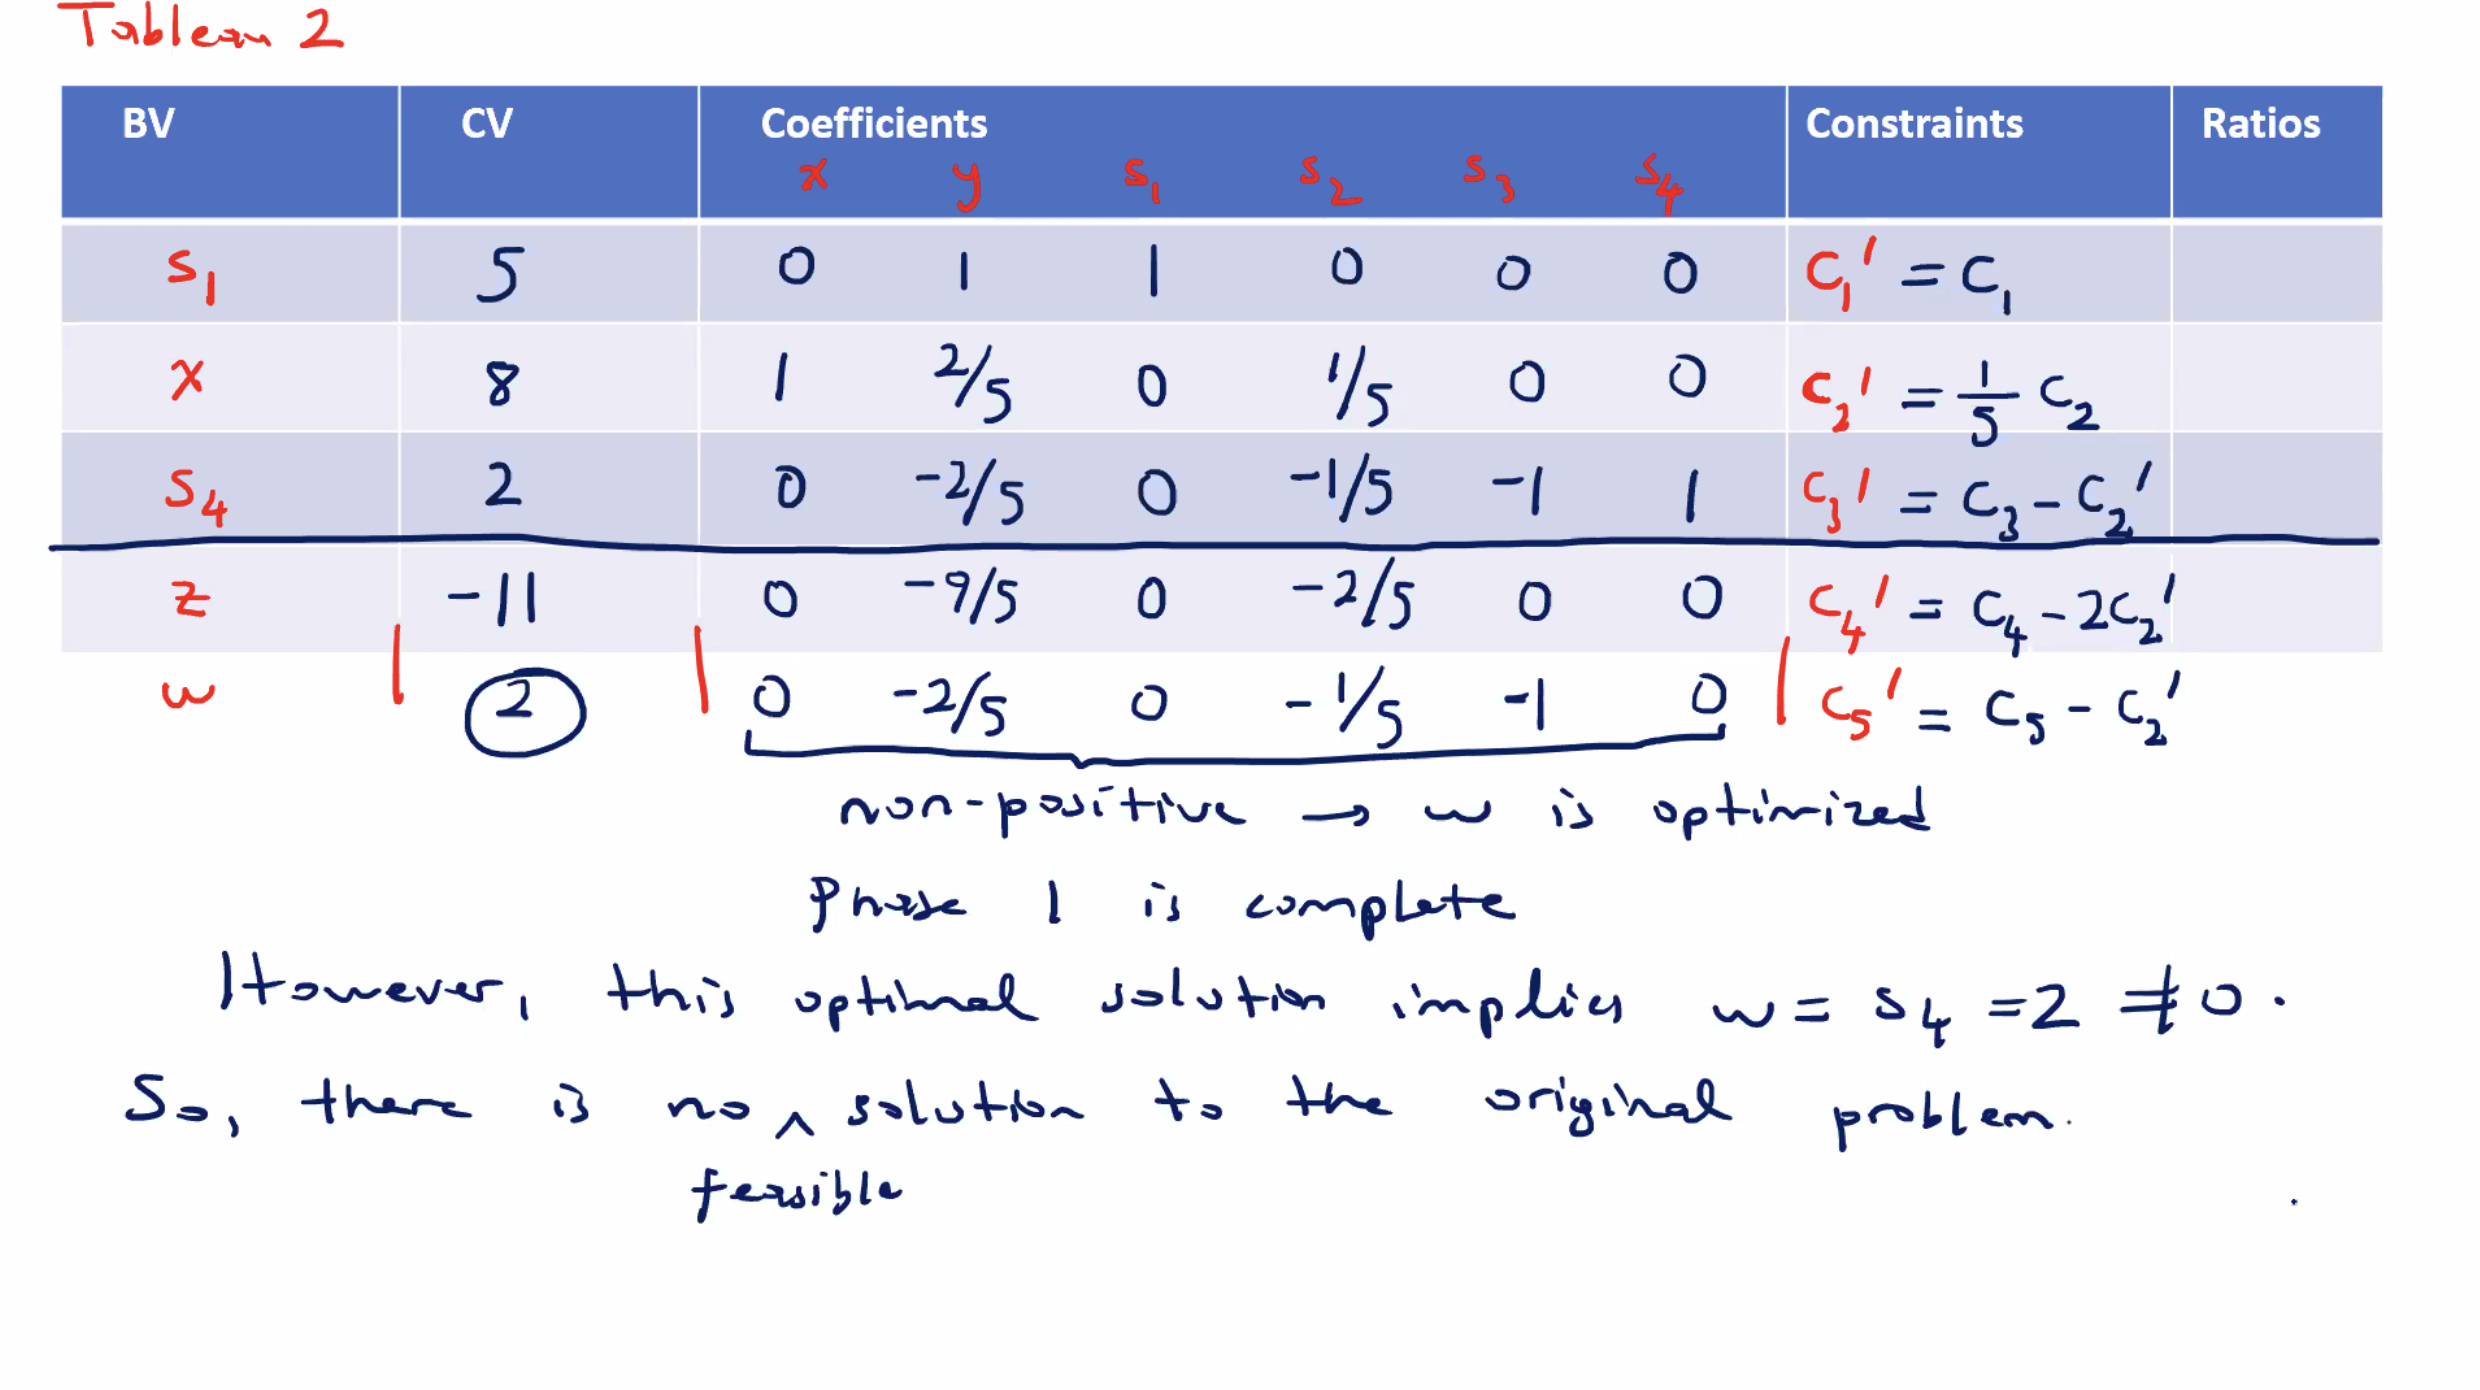 Tableau 2
BV CV Coefficients Constraints Ratios
x y s₁ s₂ s₃ s₄
s₁ 5 0 1 1 0 0 0 C₁' = C₁
x 8 1 2/5 0 1/5 0 0 C₂' = 1/5 C₂
s₄ 2 0 -2/5 0 -1/5 -1 1 C₃' = C₃ - C₂'
z -11 0 -9/5 0 -2/5 0 0 C₄' = C₄ - 2C₂'
w 2 0 -2/5 0 -1/5 -1 0 C₅' = C₅ - C₂'
non-positive → w is optimized
Phase 1 is complete
However, this optimal solution implies w = s₄ = 2 ≠ 0.
So, there is no ^ solution to the original problem.
feasible